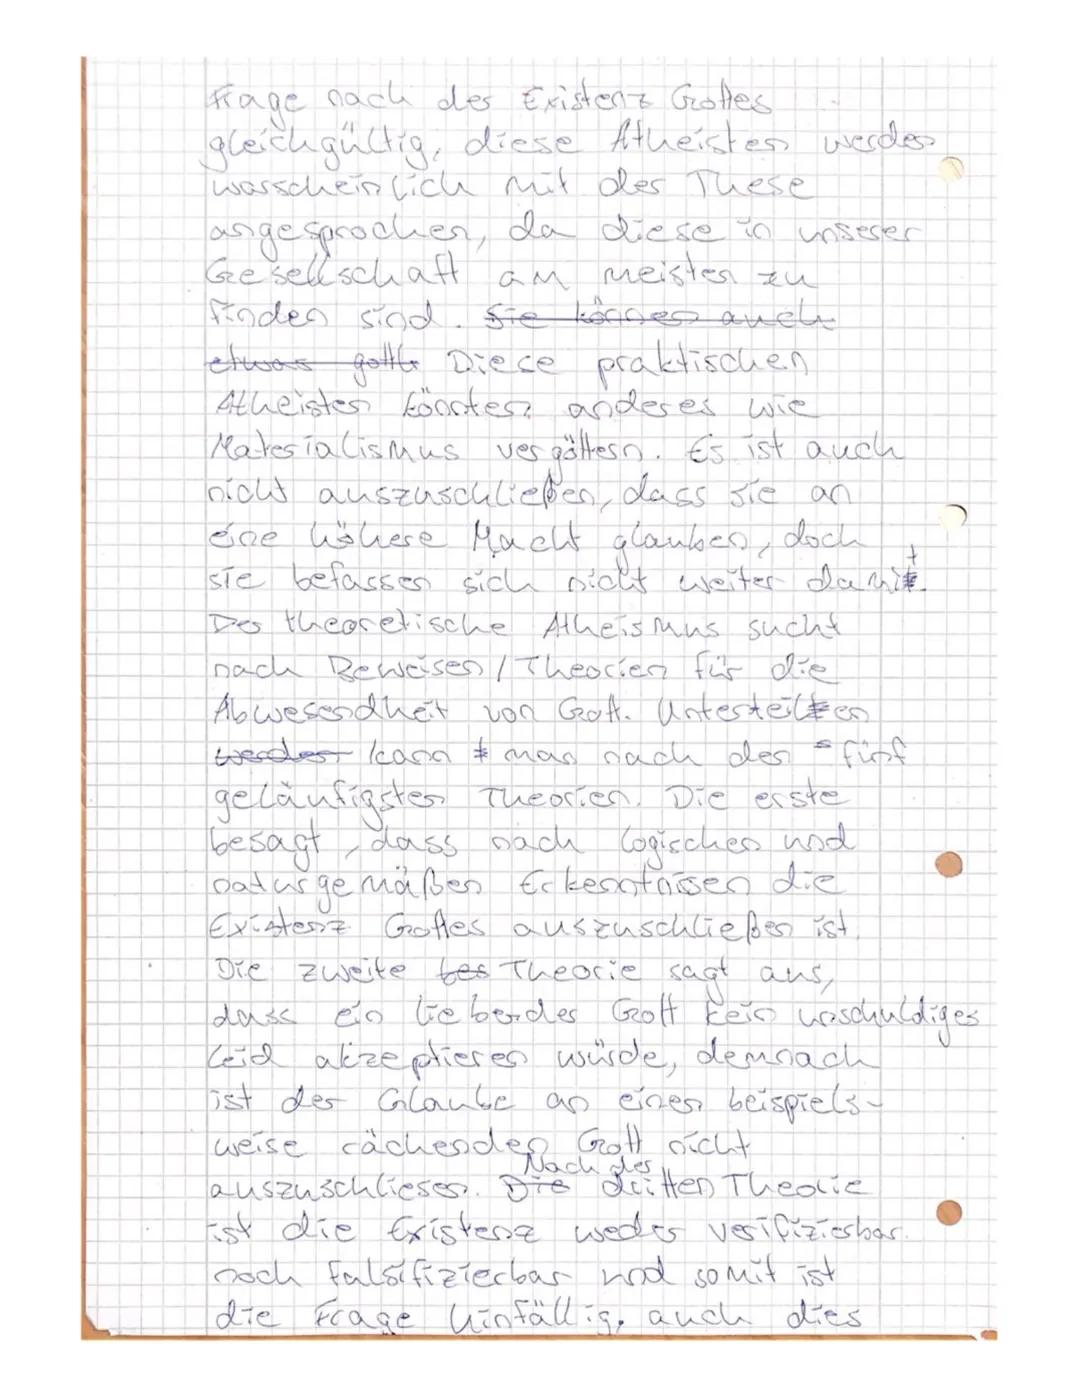 Frage nach der Existenz Gottes
gleichgültig, diese Atheisten werden
warscheinlich mit der These
angesprochen, da diese in unserer
Gesellschaft am meisten zu
finden sind. Sie können auch
etwas gottl Diese praktischen
Atheisten könnten anderes wie
Materialismus vergöttern. Es ist auch
nicht auszuschließen, dass sie an
eine höhere Macht glauben, doch
sie befassen sich nicht weiter damit.
Der theoretische Atheismus sucht
nach Beweisen / Theorien für die
Abwesendheit von Gott. Unterteilen
werden kann man nach den fünf
geläufigsten Theorien. Die erste
besagt, dass nach logischen und
naturgemäßen Erkenntnissen die
Existenz Gottes auszuschließen ist.
Die zweite bes Theorie sagt aus,
dass ein liebender Gott kein unschuldiges
Leid akzeptieren würde, demnach
ist der Glaube an einen beispiels-
weise rächenden Gott nicht
auszuschliesen. Die Nach der dritten Theorie
ist die Existenz weder verifizierbar
noch falsifizierbar und somit ist
die Frage hinfällig, auch dies